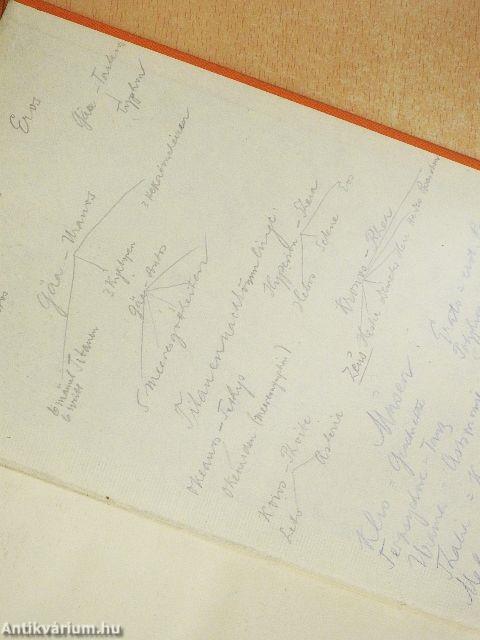 Eros
Gäa - Tartaros
Typhon
Gäa - Uranos
6 männl. Titanen
6 weibl.
3 Kyklopen
3 Hekatoncheiren
Gäa - Pontos
5 Meeresgottheiten
Titanennachkömmlinge:
Okeanos - Tethys
Okeaniden (Meernymphen)
Koios - Phoibe
Leto
Asteria
Hyperion - Theia
Helios
Selene
Eos
Kronos - Rhea
Zeus Hestia Demeter Hera Hades Poseidon
Musen
Klio = Geschichte
Terpsychore - Tanz
Urania = Astronomie
Thalia =
Erato =
Antikvárium.hu